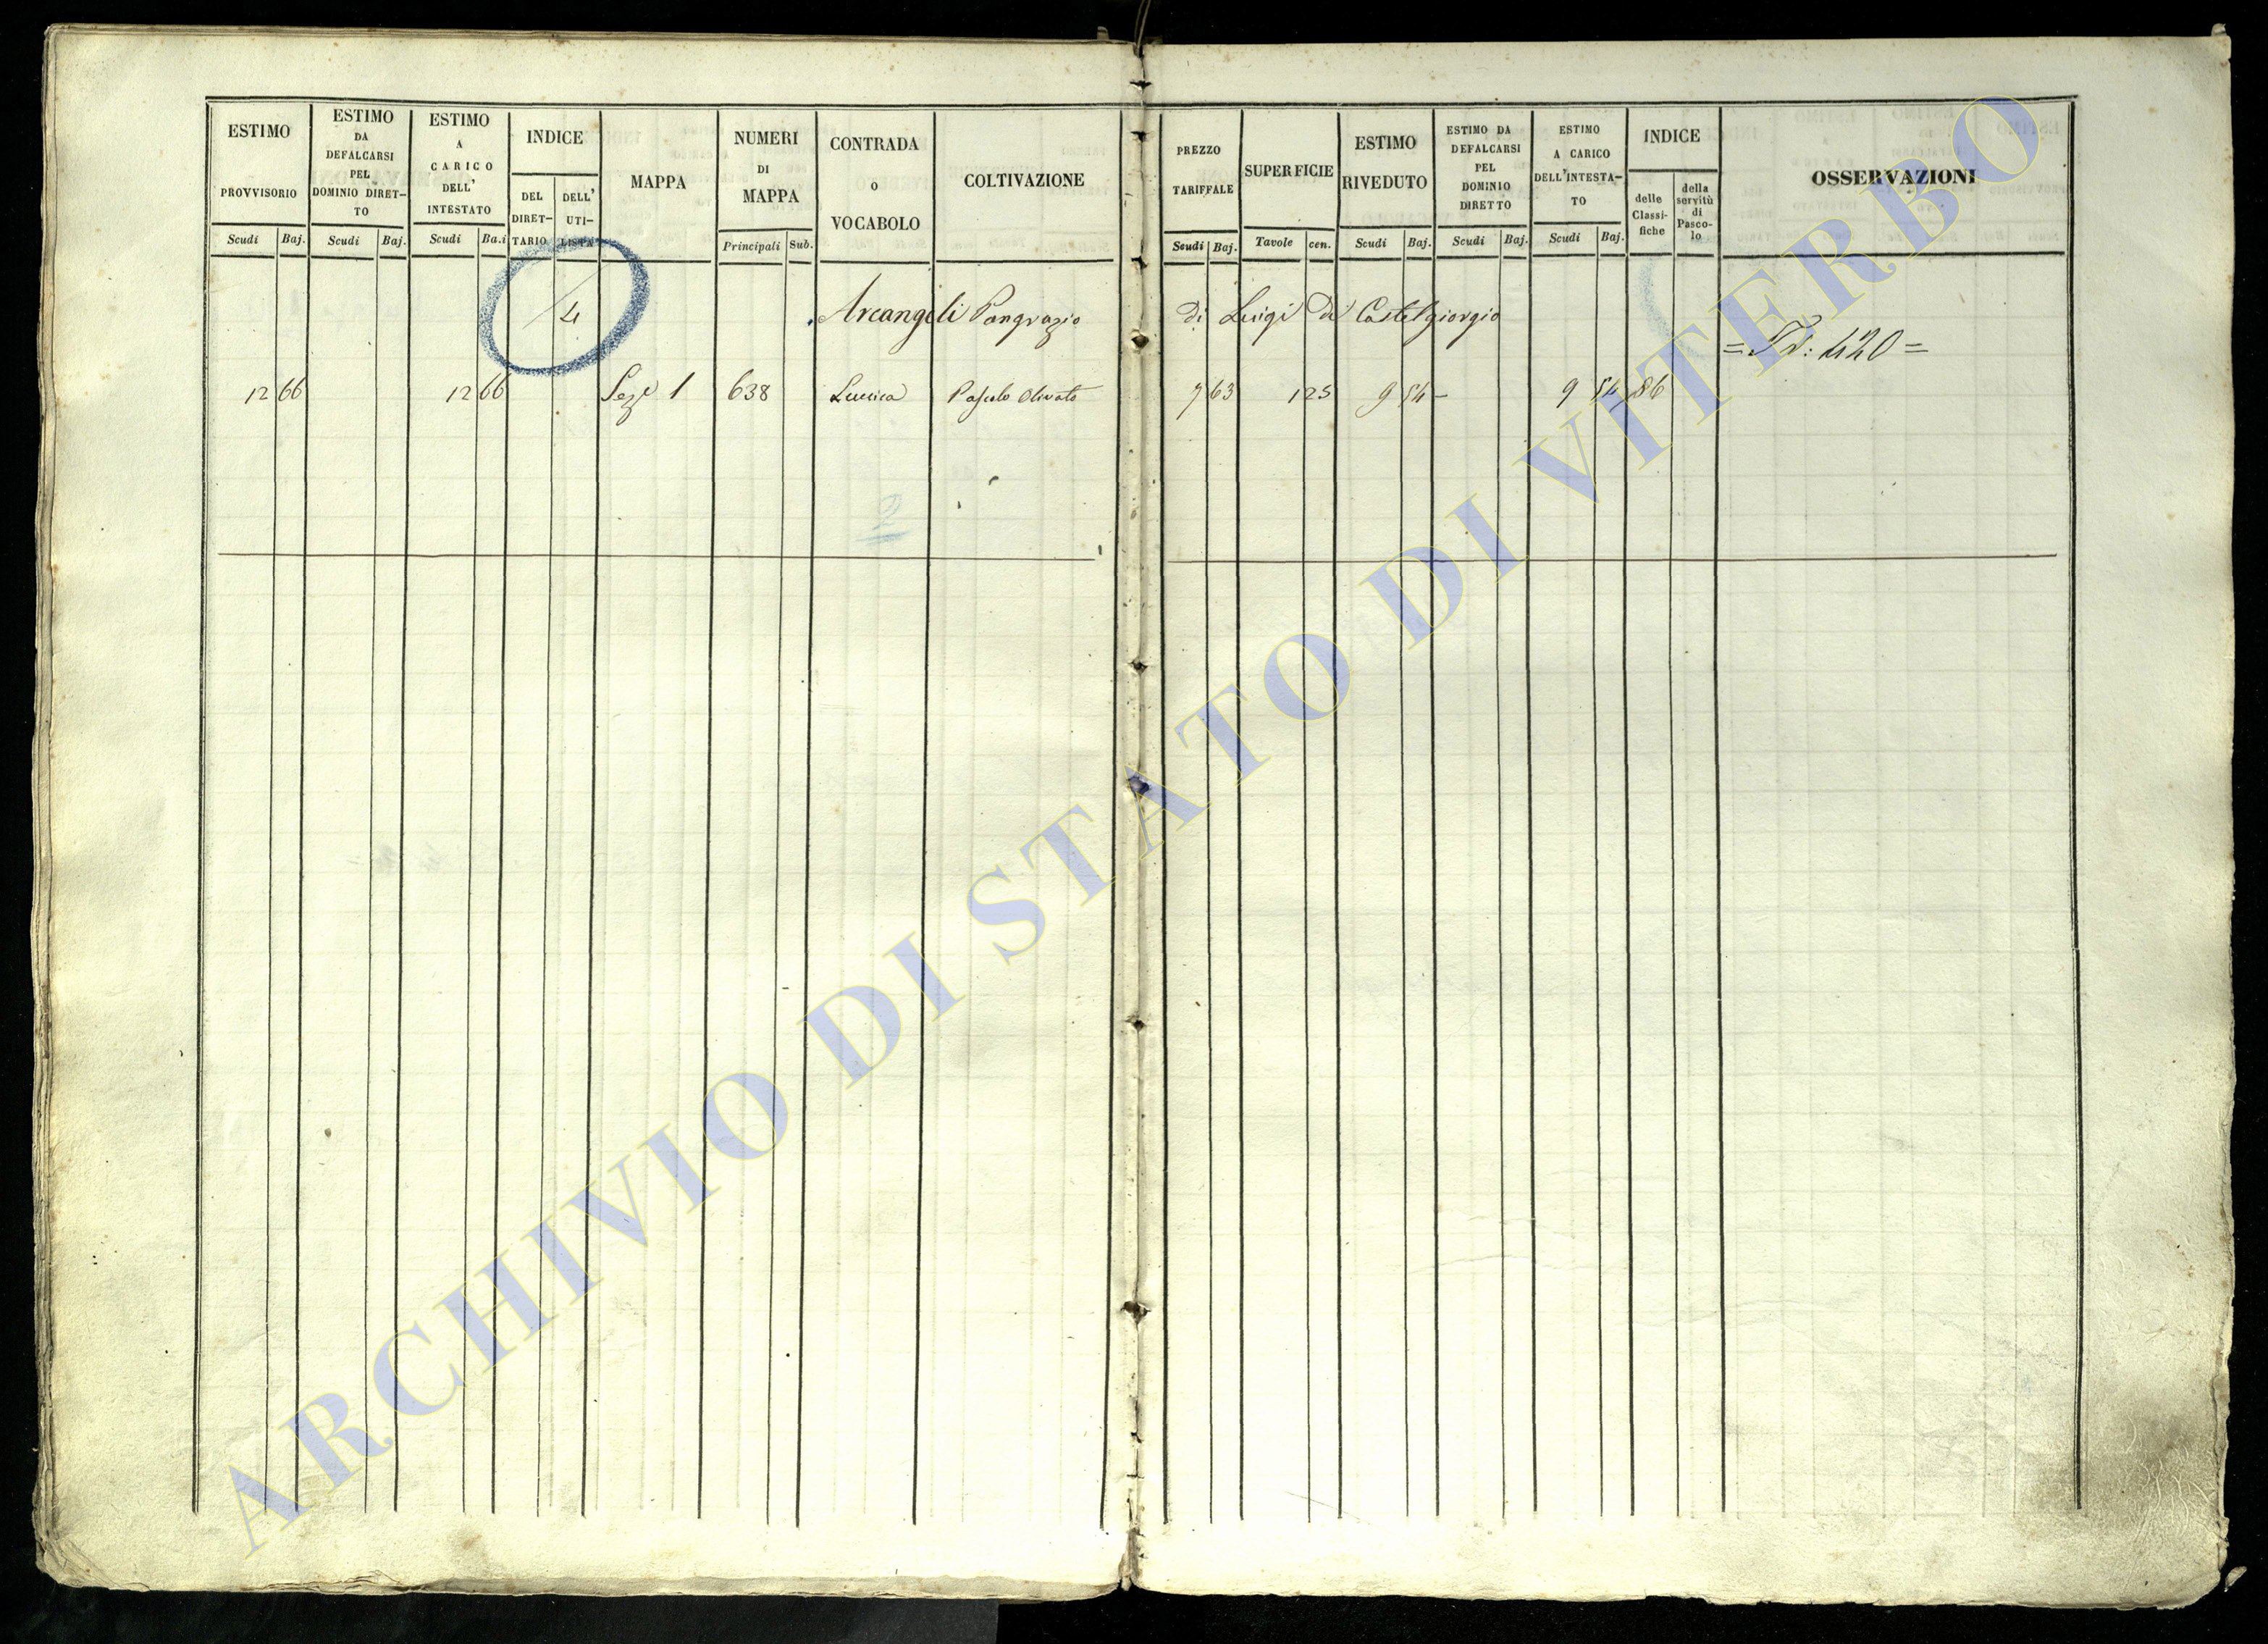 ESTIMO PROVVISORIO Scudi Baj.
ESTIMO DA DEFALCARSI PEL DOMINIO DIRET-TO Scudi Baj.
ESTIMO A CARICO DELL' INTESTATO Scudi Ba.i
INDICE DEL DIRET-TARIO DELL' UTI-LISTA
MAPPA
NUMERI DI MAPPA Principali Sub.
CONTRADA O VOCABOLO
COLTIVAZIONE
PREZZO TARIFFALE Scudi Baj.
SUPERFICIE Tavole cen.
ESTIMO RIVEDUTO Scudi Baj.
ESTIMO DA DEFALCARSI PEL DOMINIO DIRETTO Scudi Baj.
ESTIMO A CARICO DELL'INTESTA-TO Scudi Baj.
INDICE delle Classi-fiche della servitù di Pasco-lo
OSSERVAZIONI
4 Arcangeli Pangrazio di Luigi Di Castelgiorgio
= Tr: 420 =
12 66 12 66 Sez. 1 638 Pascolo Olivato 7 63 1 25 9 54 — 9 54 86
2
ARCHIVIO DI STATO DI VITERBO